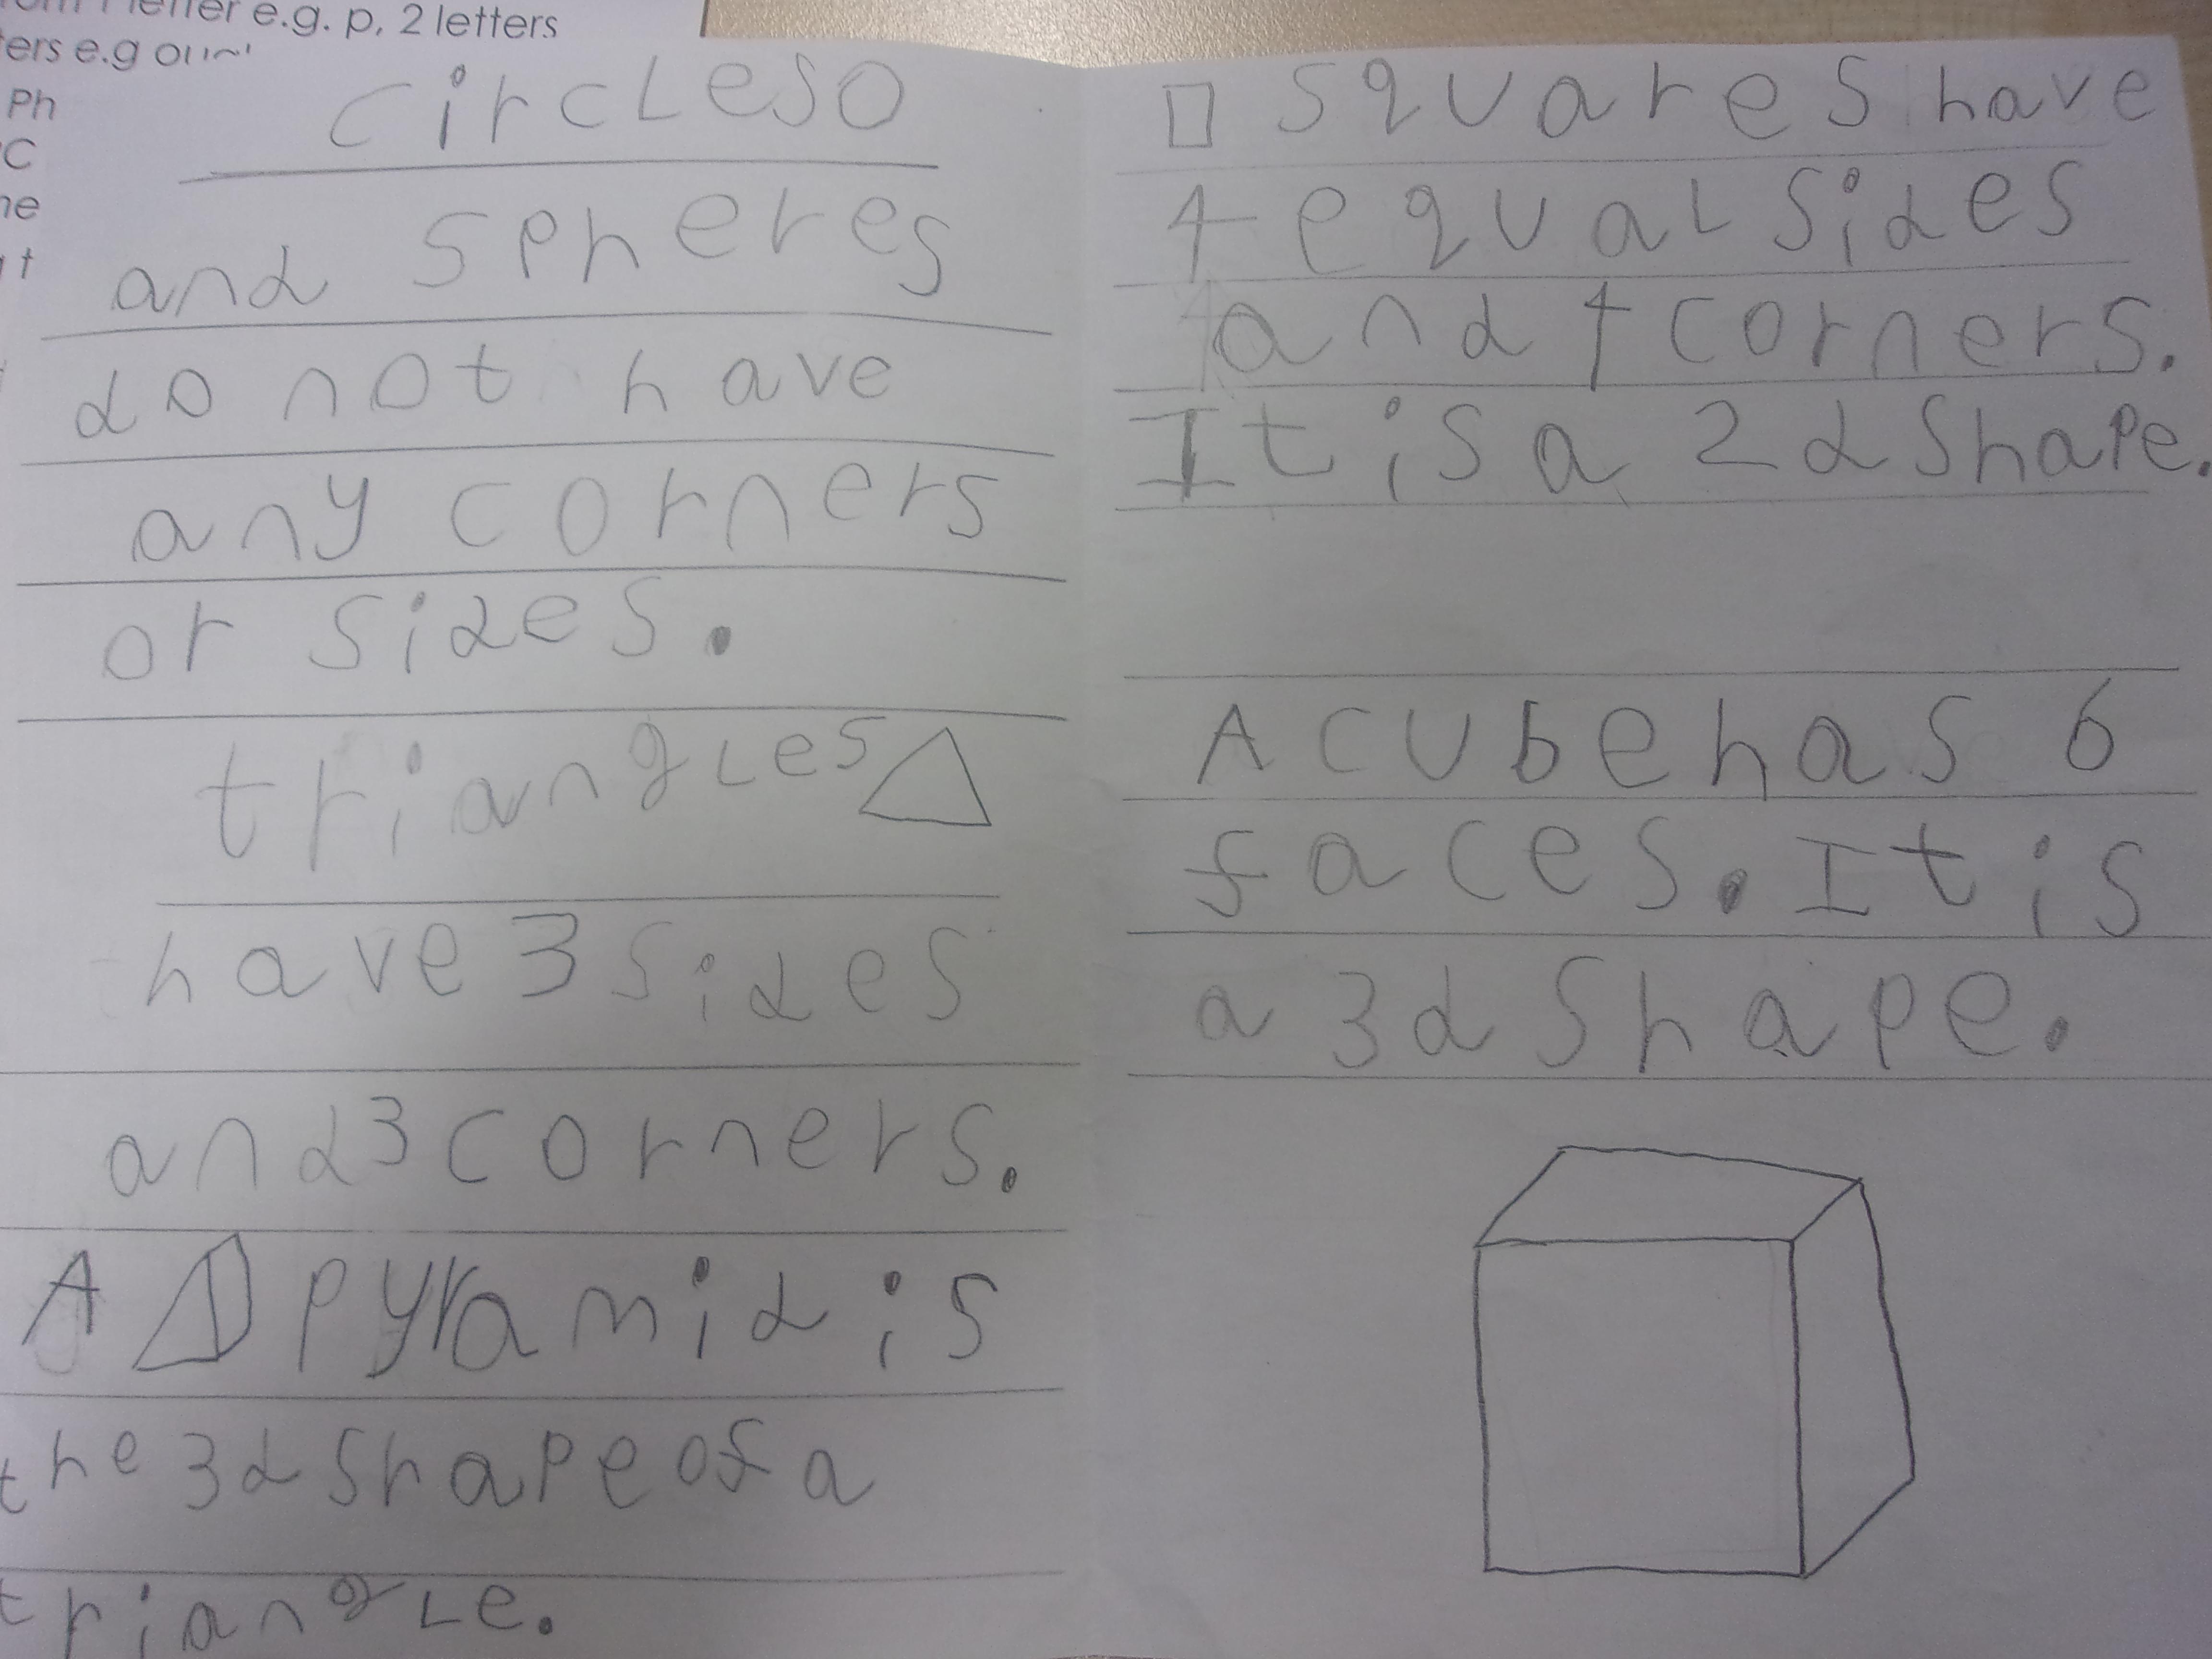 letter e.g. p, 2 letters
ers e.g
Ph
C
he
t
circles
and spheres
do not have
any corners
or sides.
triangles
have 3 sides
and 3 corners.
A pyramid is
the 3d shape of a
triangle.
squares have
4 equal sides
and 4 corners.
It is a 2d shape.
A cube has 6
faces. It is
a 3d shape.